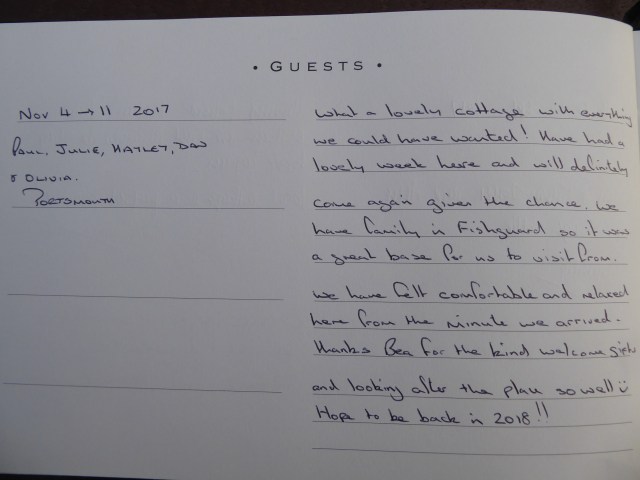 • GUESTS •
Nov 4 → 11 2017
PAUL, JULIE, HAYLEY, DAN
& OLIVIA.
PORTSMOUTH
What a lovely cottage with everything
we could have wanted! Have had a
lovely week here and will definitely
come again given the chance. We
have family in Fishguard so it was
a great base for us to visit from.
We have felt comfortable and relaxed
here from the minute we arrived.
Thanks Bea for the kind welcome gifts
and looking after the place so well :)
Hope to be back in 2018!!